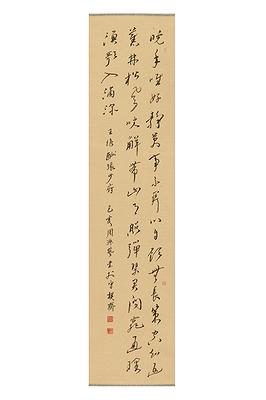 晚年唯好静萬事不關心自顧無長策空知返
舊林松風吹解帶山月照彈琴君問窮通理
漁歌入浦深
王維酬張少府 己亥周